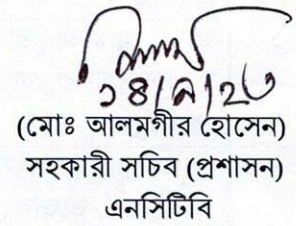 ১৪/৭/২৬
(মোঃ আলমগীর হোসেন)
সহকারী সচিব (প্রশাসন)
এনসিটিবি